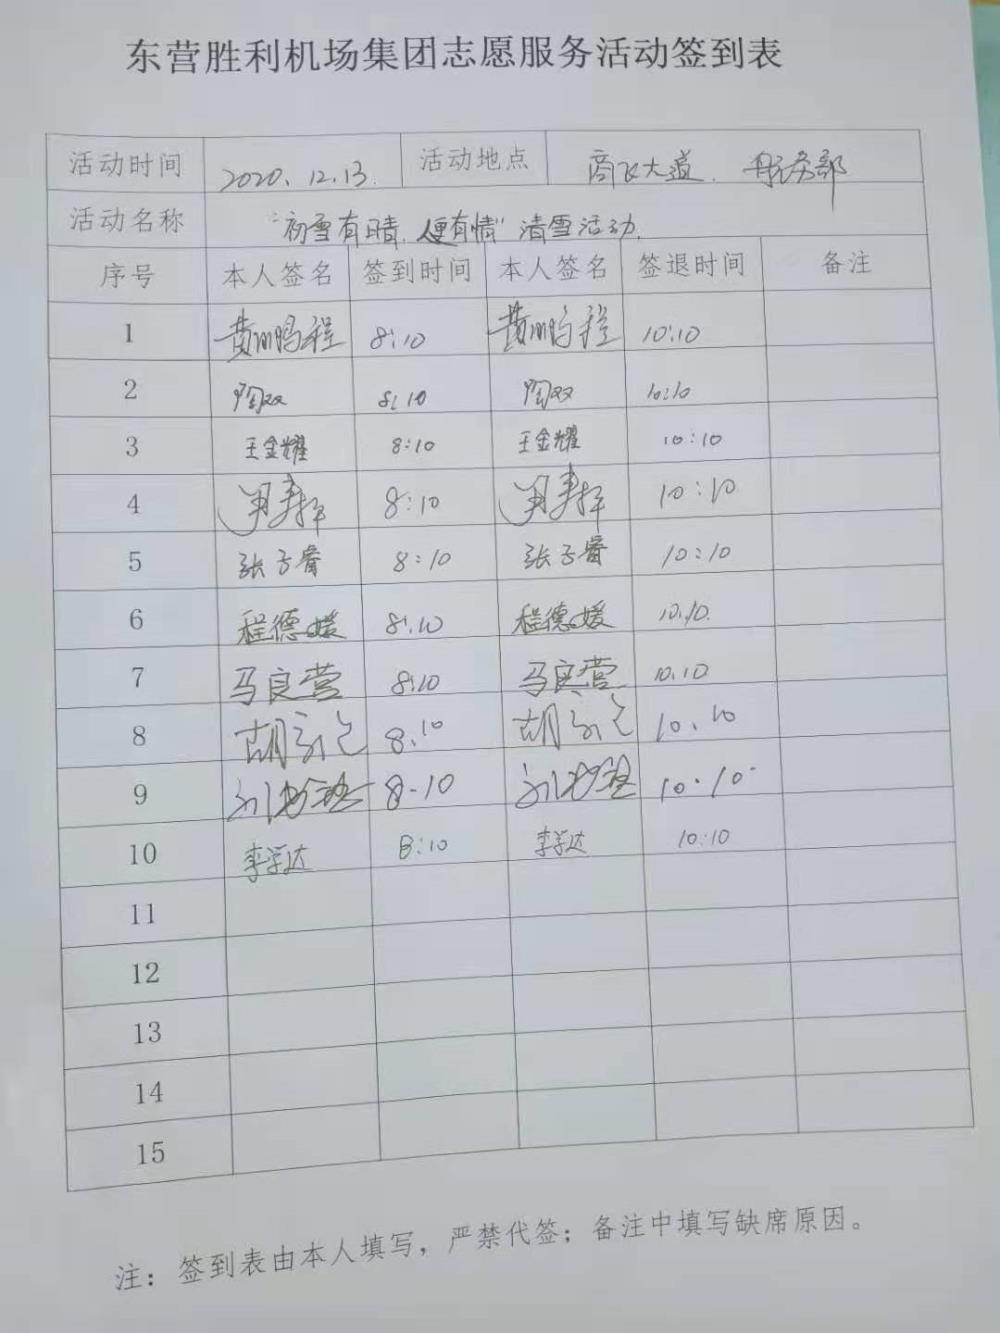 东营胜利机场集团志愿服务活动签到表
活动时间 2020.12.13. 活动地点 商飞大道.
活动名称 "初雪有晴,便有情"清雪活动.
序号 本人签名 签到时间 本人签名 签退时间 备注
1 8:10 10:10
2 陶双 8:10 陶双 10:10
3 王金耀 8:10 王金耀 10:10
4 8:10 10:10
5 张子睿 8:10 张子睿 10:10
6 程德媛 8:10 程德媛 10.10.
7 马良营 8:10 马良营 10.10
8 8.10 10.10
9 8-10 10.10.
10 李学达 8:10 李学达 10:10
11
12
13
14
15
注：签到表由本人填写，严禁代签；备注中填写缺席原因。